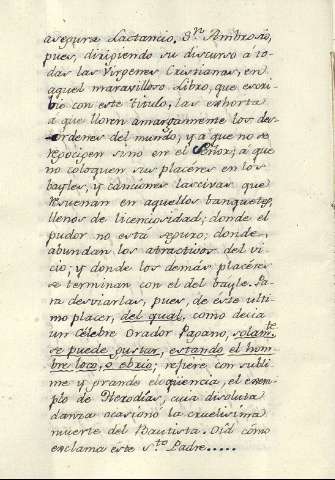 asegura Lactancio, Sn. Ambrosio,
pues, dirigiendo su discurso á to-
das las Virgenes Cristianas, en
aquel maravilloso Libro, que escri-
bió con este titulo, las exhorta
a que lloren amargamente los des-
ordenes del mundo, y a que no se
regocijen sino en el Señor; a que
no coloquen sus placeres en los
bayles, y canciones lascivas que
resuenan en aquellos banquetes,
llenos de licenciosidad; donde el
pudor no está seguro; donde
abundan los atractivos del vi-
cio; y donde los demás placeres
se terminan con el del bayle. Pa-
ra desviarlas, pues, de éste ulti-
mo placer, del qual, como decia
un Célebre Orador Pagano, solamte.
se puede gustar, estando el hom-
bre loco, o ebrio; refiere con subli-
me y grande eloqüencia, el exem-
plo de Herodias, cuia disoluta
danza ocasionó la cruelisima
muerte del Bautista. Oíd cómo
exclama éste Sto. Padre.....